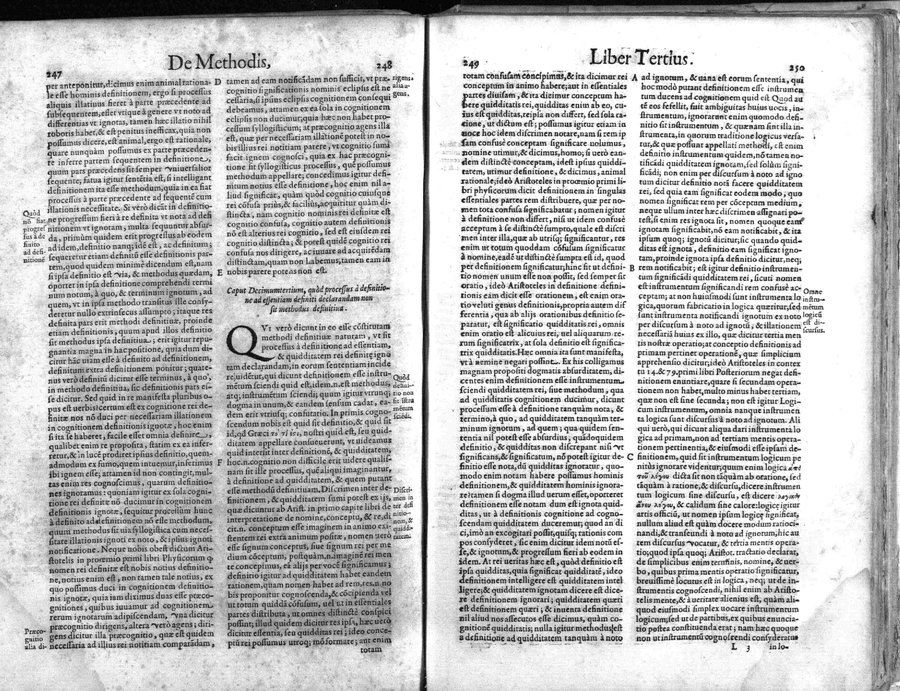 De Methodis,
247
248
per anteponitur, dicimus enim animal rationa-
le esse hominis definitionem, ergo si processus
aliquis illatiuus fieret à parte præcedente ad
subsequentem, esset vtique à genere vt noto ad
differentias vt ignotas, tamen hæc illatio nihil
roboris habet, & est penitus inefficax, quia non
possumus dicere, est animal, ergo est rationale,
quare nunquam possumus ex parte præceden-
te inferre partem sequentem in definitione,
quum pars præcedens sit semper vniuersalior
sequente;
definitionem ita esse methodum, quia in ea fiat
processus à parte præcedente ad sequentē cum
illationis necessitate. Si verò dicāt in definitio-
ne progressum fieri à re definita vt nota ad defi
nitionem vt ignotam, multa sequuntur absur-
da, primùm quidem erit progressus ab eodem
ad idem, definitio nanq; idē est, ac definitum;
tem, quod quidem minimè dicendum est, nam
ipsa definitio est via, & methodus quædam,
oportet in ipsa definitione comprehendi termi
num notum, à quo, & terminum ignotum, ad
quem, vt in ipsa methodo transitus ille consy-
deretur nullo extrinsecus assumpto; itaque res
definita pars erit methodi definitiuæ, proinde
etiam definitionis, quum apud illos definitio
sit methodus ipsa definitiua; erit igitur repu-
gnantia magna in hac positione, quia dum di-
citur hāc viam esse à definito ad definitionem,
definitum extra definitionem ponitur; quate-
nus verò definitū dicitur esse terminus, à quo,
in methodo definitiua, sic definitio pars es-
se dicitur. Sed quid in re manifesta pluribus o-
pus est verbis? certum est ex cognitione rei de-
finitæ nos nō duci per necessariam illationem
in cognitionem definitionis ignotæ, hoc enim
si ita se haberet, facile esset omnia definire,
qualibet enim re proposita, statim ex ea infer-
retur, & in lucē prodiret ipsius definitio, quem-
admodum ex fumo, quem intuemur, inferimus
ibi ignem esse, attamen id non contingit, mul-
tas enim res cognoscimus, quarum definitio-
nes ignoramus: quoniam igitur ex sola cogni-
tione rei definitæ nō ducimur in cognitionem
definitionis ignotæ, sequitur processum hunc
à definito ad definitionem nō esse methodum,
quum methodus sit quasi syllogistica cum neces-
sitate illationis ignoti ex noto, & ipsius ignoti
notificatione. Neque nobis obest dictum Aris-
totelis in proœmio primi libri Physicorum q
nomen rei definitæ est nobis notius definitione,
ne, notius enim est, non tamen tale notius, ex
quo possimus duci in cognitionem definitio-
nis ignotæ, quia iam diximus duas esse præco-
gnitiones, quibus iuuamur ad cognitionem
rerum ignotarum adipiscendam, vna dicitur
præcognitio dirigens, altera verò agens; diri-
gens dicitur illa præcognitio, quæ est quidem
necessaria ad rei ignotæ notitiam comparādam,
Quòd
nō fiat
progres
sus à de
finito
ad defi
nitionē
Præco-
gnitio
alia di-
D
E
F
tamen ad eam notificādam non sufficit, vt præ
cognitio significationis nominis eclipsis est ne
cessaria, si ipsius eclipsis cognitionem consequi
debeamus, attamen ex ea sola in cognitionem
eclipsis non ducimur, quia hæc non habet pro-
cessum syllogisticum; at præcognitio agens illa
est, quæ per necessariam illationē potest in no-
bis illius rei notitiam parere, vt cognitio fumi
facit ignem cognosci, quia ex hac præcogni-
tione fit syllogisticus processus, quē possumus
methodum appellare; concedimus igitur defi-
nitum notius esse definitione, hoc enim nil a-
liud significat, quàm quòd cognitio cuiusque
rei cōfusa prius, & facilius, acquiritur quàm di-
stincta, nam cognitio nominis rei definitæ est
cognitio confusa, cognitio autem definitionis
nō est alterius rei cognitio, sed est eiusdem rei
cognitio distincta; & potest quidē cognitio rei
confusa nos dirigere, ac iuuare ad acquirēdam
distinctam, quam non habemus, tamen eam in
nobis parere potens non est.
rigens,
alia a-
gens.
Caput Decimumtertium, quòd processus à definitio-
ne ad essentiam definiti declarandam non
sit methodus definitiua.
QVi verò dicunt in eo esse cōstitutam
methodi definitiuæ naturam, vt sit
processus à definitione ad essentiam,
& quidditatem rei definitę igno
tam declarandam, in eorum sententiam incide
re videntur, qui dicunt definitionem esse instru
mētum sciendi quid est, idem.n. est methodus,
atq; instrumētum sciendi; quum igitur vtrunq;
dogma in vnum, & eandem sensum cadat, ea-
dem erit vtriusq; confutatio. In primis cogno-
scendum nobis est quid sit definitio, & quid sit
id, qd Græci τὸ τί ἐστι, nostri quid est, seu quid-
ditatem appellare consueuerunt, vt videamus
quid intersit inter definitionē, & quidditatem,
hoc.n. cognito non difficile erit videre quali-
nam sit ille processus, quē aliqui imaginantur,
à definitione ad quidditatem, & quem putant
esse methodū definitiuam. Discrimen inter de-
finitionem, & quidditatem sumi potest ex ijs,
quæ dicuntur ab Arist. in primo capite libri de
interpretatione de nomine, conceptu, & re, di-
cit.n. conceptum esse imaginem in animo exi-
stentem rei extra animum positæ, nomen verò
esse signum conceptus, siue signum rei per me
dium cōceptum, postquam.n. imaginē rei men
te concepimus, eā alijs per vocē significamus;
definitio igitur ad quidditatem habet eandem
rationem, quam nomen habet ad rem, res.n. no
bis proponitur cognoscenda, & cōcipienda vel
vt totum quoddā cōfusum, vel vt in essentiales
partes distributa, vt omnes distinctē conspici
possint, illud quidem dicitur res ipsa, hæc verò
dicitur essentia, seu quidditas rei; ideo conce-
ptū rei possumus vtroq; mō formare; aut enim
totam
Quòd
definitio
non sit
instru
mētum
sciendi
Discri-
men in
ter defi
nitionē
nem, &
quiddi-
tatem.
Liber Tertius.
249
250
totam confusam concipimus, & ita dicimur rei
conceptum in animo habere; aut in essentiales
partes diuisam, & ita dicimur conceptum ha-
bere quidditatis rei, quidditas enim ab eo, cu-
ius est quidditas, reipsa non differt, sed sola ra-
tione, vt dictum est; possumus igitur etiam in
voce hoc idem discrimen notare, nam si rem ip
sam confusè conceptam significare volumus,
nomine vtimur, & dicimus, homo; si verò ean-
dem distinctè conceptam, idest ipsius quiddi-
tatem, vtimur definitione, & dicimus, animal
rationale; ideò Aristoteles in proœmio primi li-
bri physicorum dicit definitionem in singulas
essentiales partes rem distribuere, quæ per no-
men tota confusa significabatur; nomen igitur
à definitione non differt, nisi vt idem confusè
acceptum à se distinctè sumpto, quale est discri
men inter illa, quæ ab vtrisq; significantur, res
enim vt totum quoddam cōfusum significatur
à nomine, eadē vt distinctè sumpta est id, quod
per definitionem significatur; hanc sit vt defini-
tio nomen vnum esse non possit, sed semper sit
oratio, ideò Aristoteles in definitione defini-
tionis eam dicit esse orationem, est enim orati
tio veluti genus definitionis, propria autem dif
ferentia, qua ab alijs orationibus definitio se-
paratur, est significatio quidditatis rei, omnis
enim oratio est alicuius rei, uel aliquarum re-
rum significatrix, at sola definitio est significa-
trix quidditatis. Hæc omnia ita sunt manifesta,
vt à nemine negari possint. Ex his colligamus
magnam propositi dogmatis absurditatem, di-
centes enim definitionem esse instrumentum,
sciendi quidditatem rei, siue methodum, qua
ad quidditatis cognitionem ducimur, dicunt
processum esse à definitione tanquàm nota, &
termino, à quo, ad quidditatem tanquàm ter-
minum ignotum, ad quem; qua quidem sen-
tentia nil potest esse absurdius; quādoquidem
definitio, & quidditas non discrepant nisi vt
significans, & significatum, nō potest igitur de-
finitio esse nota, dū quidditas ignoratur, quo-
modo enim notam habere possumus hominis
definitionem, & quidditatem hominis ignora-
re? tamen si dogma illud uerum esset, oporteret
definitionem esse notam dum est ignota quid-
ditas, ut à definitionis cognitione ad cogno-
scendam quidditatem duceremur; quod an di
ci, imò an excogitari possit, quisq; rationis com
pos consyderet, sic enim dicitur idem notū es-
se, & ignotum, & progressum fieri ab eodem in
idem. At rei ueritas hæc est, quòd definitio est
ipsa quidditas, quia significat quidditatē, ideo
definitionem intelligere est quidditatem intel-
ligere; & quidditatem ignotam dicere est dice-
re definitionem ignorari; quidditatem quæri
est definitionem quæri; & inuenta definitione
nil aliud nos assecutos esse dicimus, quàm co-
gnitionē quidditatis; nulla igitur methodus est
a definitione ad quidditatem tanquàm à noto
A
B
C
ad ignotum, & uana est eorum sententia, qui
hoc modò putant definitionem esse instrumen
tum ducens ad cognitionem quid est. Quod au
tē eos fefellit, fuit ambiguitas huius uocis, in-
strumentum, ignorarunt enim quomodo defi-
nitio sit instrumentum, & quænam sint illa in-
strumenta, in quorum traditione logicus versa-
tur, & quæ possunt appellari methodi, est enim
definitio instrumentum quidem, nō tamen no-
tificādi quidditatem ignotam, sed solùm signi-
ficādi; non enim per discursum à noto ad igno
tum dicitur definitio notā facere quidditatem
rei, sed quia eam significat eodem modo, quo
nomen significat rem per cōceptum medium,
neque ullum inter hæc discrimen assignari po-
test, si enim res ignota sit, nomen quoque eam
ignotam significabit, nō eam notificabit, & ita
ipsum quoq; ignotū dicitur; sic quando quid-
ditas est ignota, definitio eam significat igno-
tam, proinde ignota ipsa quoque dicitur, neq;
rem notificabit; est igitur definitio instrumen-
tum significādi quidditatem rei, sicuti nomen
est instrumentum significandi rem confusè ac-
ceptam; at non huiusmodi sunt instrumenta lo
gica, quorum fabricatio in logica quæritur, sed
sunt instrumenta notificandi ignotum ex noto
per discursum à noto ad ignotū, & illationem
necessariā huius ex illo, quæ dicitur tertia men
tis nostræ operatio; at conceptio definitionis ad
primam pertinet operationē, quæ simplicium
apprehensio dicitur; ideò Aristoteles in contex
tu 14. & 79. primi libri Posteriorum negat defi-
nitionem enuntiare, quare si secundam operatio-
nem non habet, multo minus habet tertiam,
quæ non est sine secunda; non est igitur Logi-
cum instrumentum, omnia nanque instrumen
ta logica sunt discursus à noto ad ignotum. Ali
qui uerò, qui dicunt aliqua dari instrumenta lo
gica ad primam, non ad tertiam mentis opera-
tionem pertinentia, & eiusmodi esse ipsam de-
finitionem, quid sit instrumentum logicum pe
nitùs ignorare videntur; quum enim logica ἀπὸ
τοῦ λόγου dicta sit non tāquàm ab oratione, sed
tāquàm à ratione, & discursu, dicere instrumen
tum logicum sine discursu, est dicere λογικὴν
ἄνευ λόγου, & calidum sine calore: logicę igitur
artis officiū, ut nomen ipsum logicę significat,
nullum aliud est quàm docere modum ratioci-
nandi, & transeundi à noto ad ignotum, hic au
tem discursus vocatur, & tertia mentis opera-
tio; quod ipsa quoq; Aristot. tractatio declarat,
de simplicibus enim terminis, nomine, & uer-
bo, quibus prima mentis operatio significatur,
breuissimè locutus est in logica, neq; ut de in-
strumentis cognoscendi, nihil enim ab Aristo-
telis mente, & à ueritate alienius est, quàm ali-
quod eiusmodi simplex uocare instrumentum
logicum, sed ut de partibus, ex quibus enuncia-
tio postea constituenda erat; nam hæc quoque
non ut instrumentū cognoscendi consyderatur
Omne
instru-
mētum
logicū
est di-
scursus.
L 3
in lo-